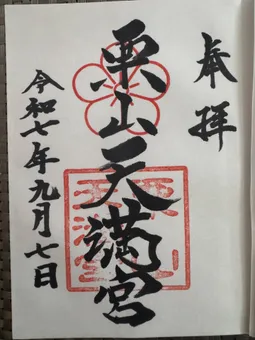 奉拝
栗山天満宮
令和七年九月七日